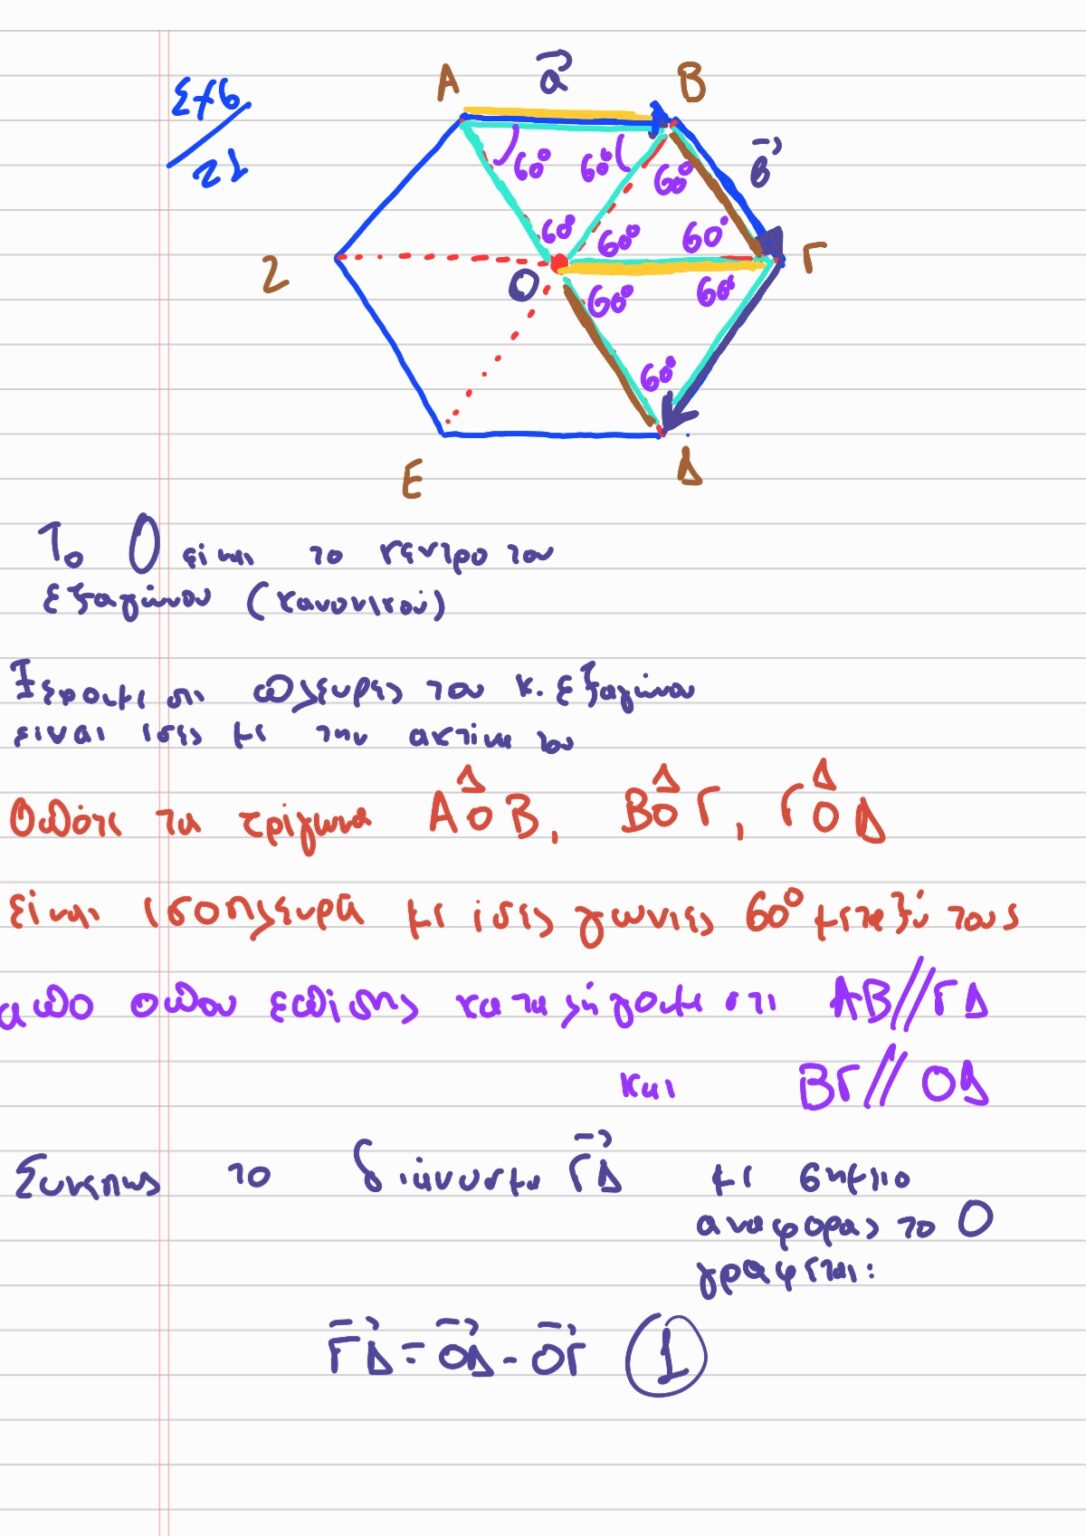 Σχ6
21
A
α
B
β
60°
60°
60°
60°
60°
60°
Γ
Ζ
Ο
60°
60°
60°
Ε
Δ
Το Ο είναι το κεντρο του
εξαγώνου (κανονικού)
Ξερουμε οτι πλευρες του κ. εξαγώνου
ειναι ισες με την ακτινα του
Οπότε τα τρίγωνα ΑΟΒ, ΒΟΓ, ΓΟΔ
είναι ισοπλευρα με ίσες γωνιες 60° μεταξύ τους
απο οπου επίσης καταλήγουμε οτι ΑΒ//ΓΔ
και ΒΓ//ΟΔ
Συνεπως το διάνυσμα ΓΔ με σημειο
αναφορας το Ο
γραφεται:
ΓΔ = ΟΔ - ΟΓ 1